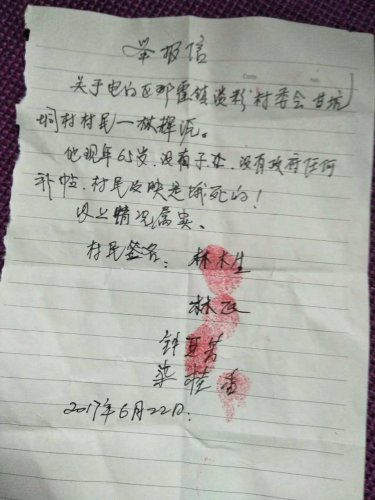 举报信
关于电白区那霍镇淡粉村委会甘坑
垌村村民一林择沅。
他现年65岁、没有子女、没有政府任何
补帖、村民反映是饿死的！
以上情况属实。
村民签名：林木生
林
钟亚芳
梁桂香
2017年6月22日.